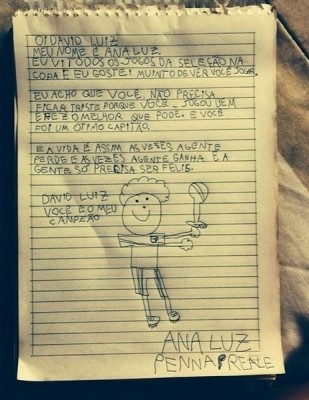 OI DAVID LUIZ
MEU NOME É ANA LUZ.
EU VI TODOS OS JOGOS DA SELEÇÃO NA
COPA E EU GOSTEI MUINTO DE VER VOCÊ JOGAR.
EU ACHO QUE VOCÊ NÃO PRECISA
FICAR TRISTE PORQUE VOCÊ JOGOU VEM
E FEZ O MELHOR QUE PODE. E VOCÊ
FOI UM OTIMO CAPITÃO.
E A VIDA É ASSIM AS VEZES AGENTE
PERDE E AS VEZES AGENTE GANHA E A
GENTE SÓ PRECISA SER FELIS.
DAVID LUIZ
VOCÊ E O MEU
CANPEÃO
ANA LUZ
PENNA PREALE